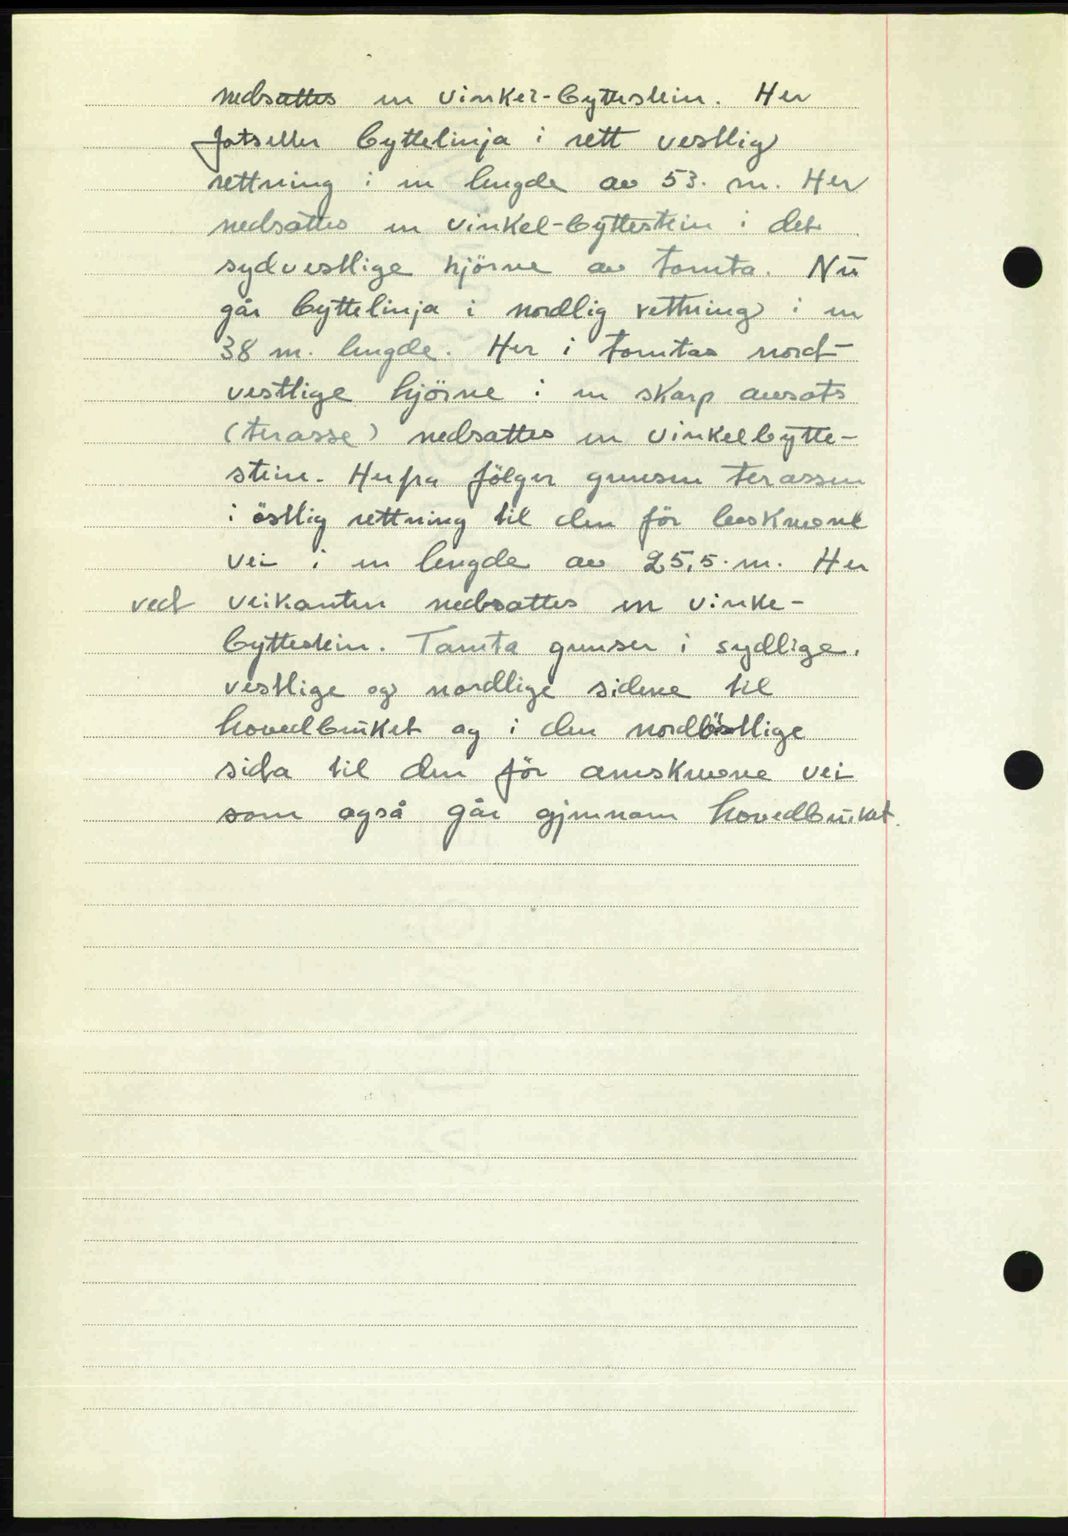 nedsattes en vinkel-byttestein. Her
fotseller byttelinja i rett vestlig
rettning i en lengde av 53. m. Her
nedsattes en vinkel-byttestein i det
sydvestlige hjörne av tomta. Nu
går byttelinja i nordlig rettning i en
38 m. lengde. Her i tomtas nord-
vestlige hjörne i en skarp avsats
(terasse) nedsattes en vinkelbytte-
stein. Herfra fölger grensen terassen
i östlig rettning til den för
vei i en lengde av 25,5. m. Her
ved veikanten nedsattes en vinke-
byttestein. Tomta grenser i sydlige,
vestlige og nordlige sidene til
hovedbruket og i den nordöstlige
sida til den för vei
som også går gjennom hovedbruket.